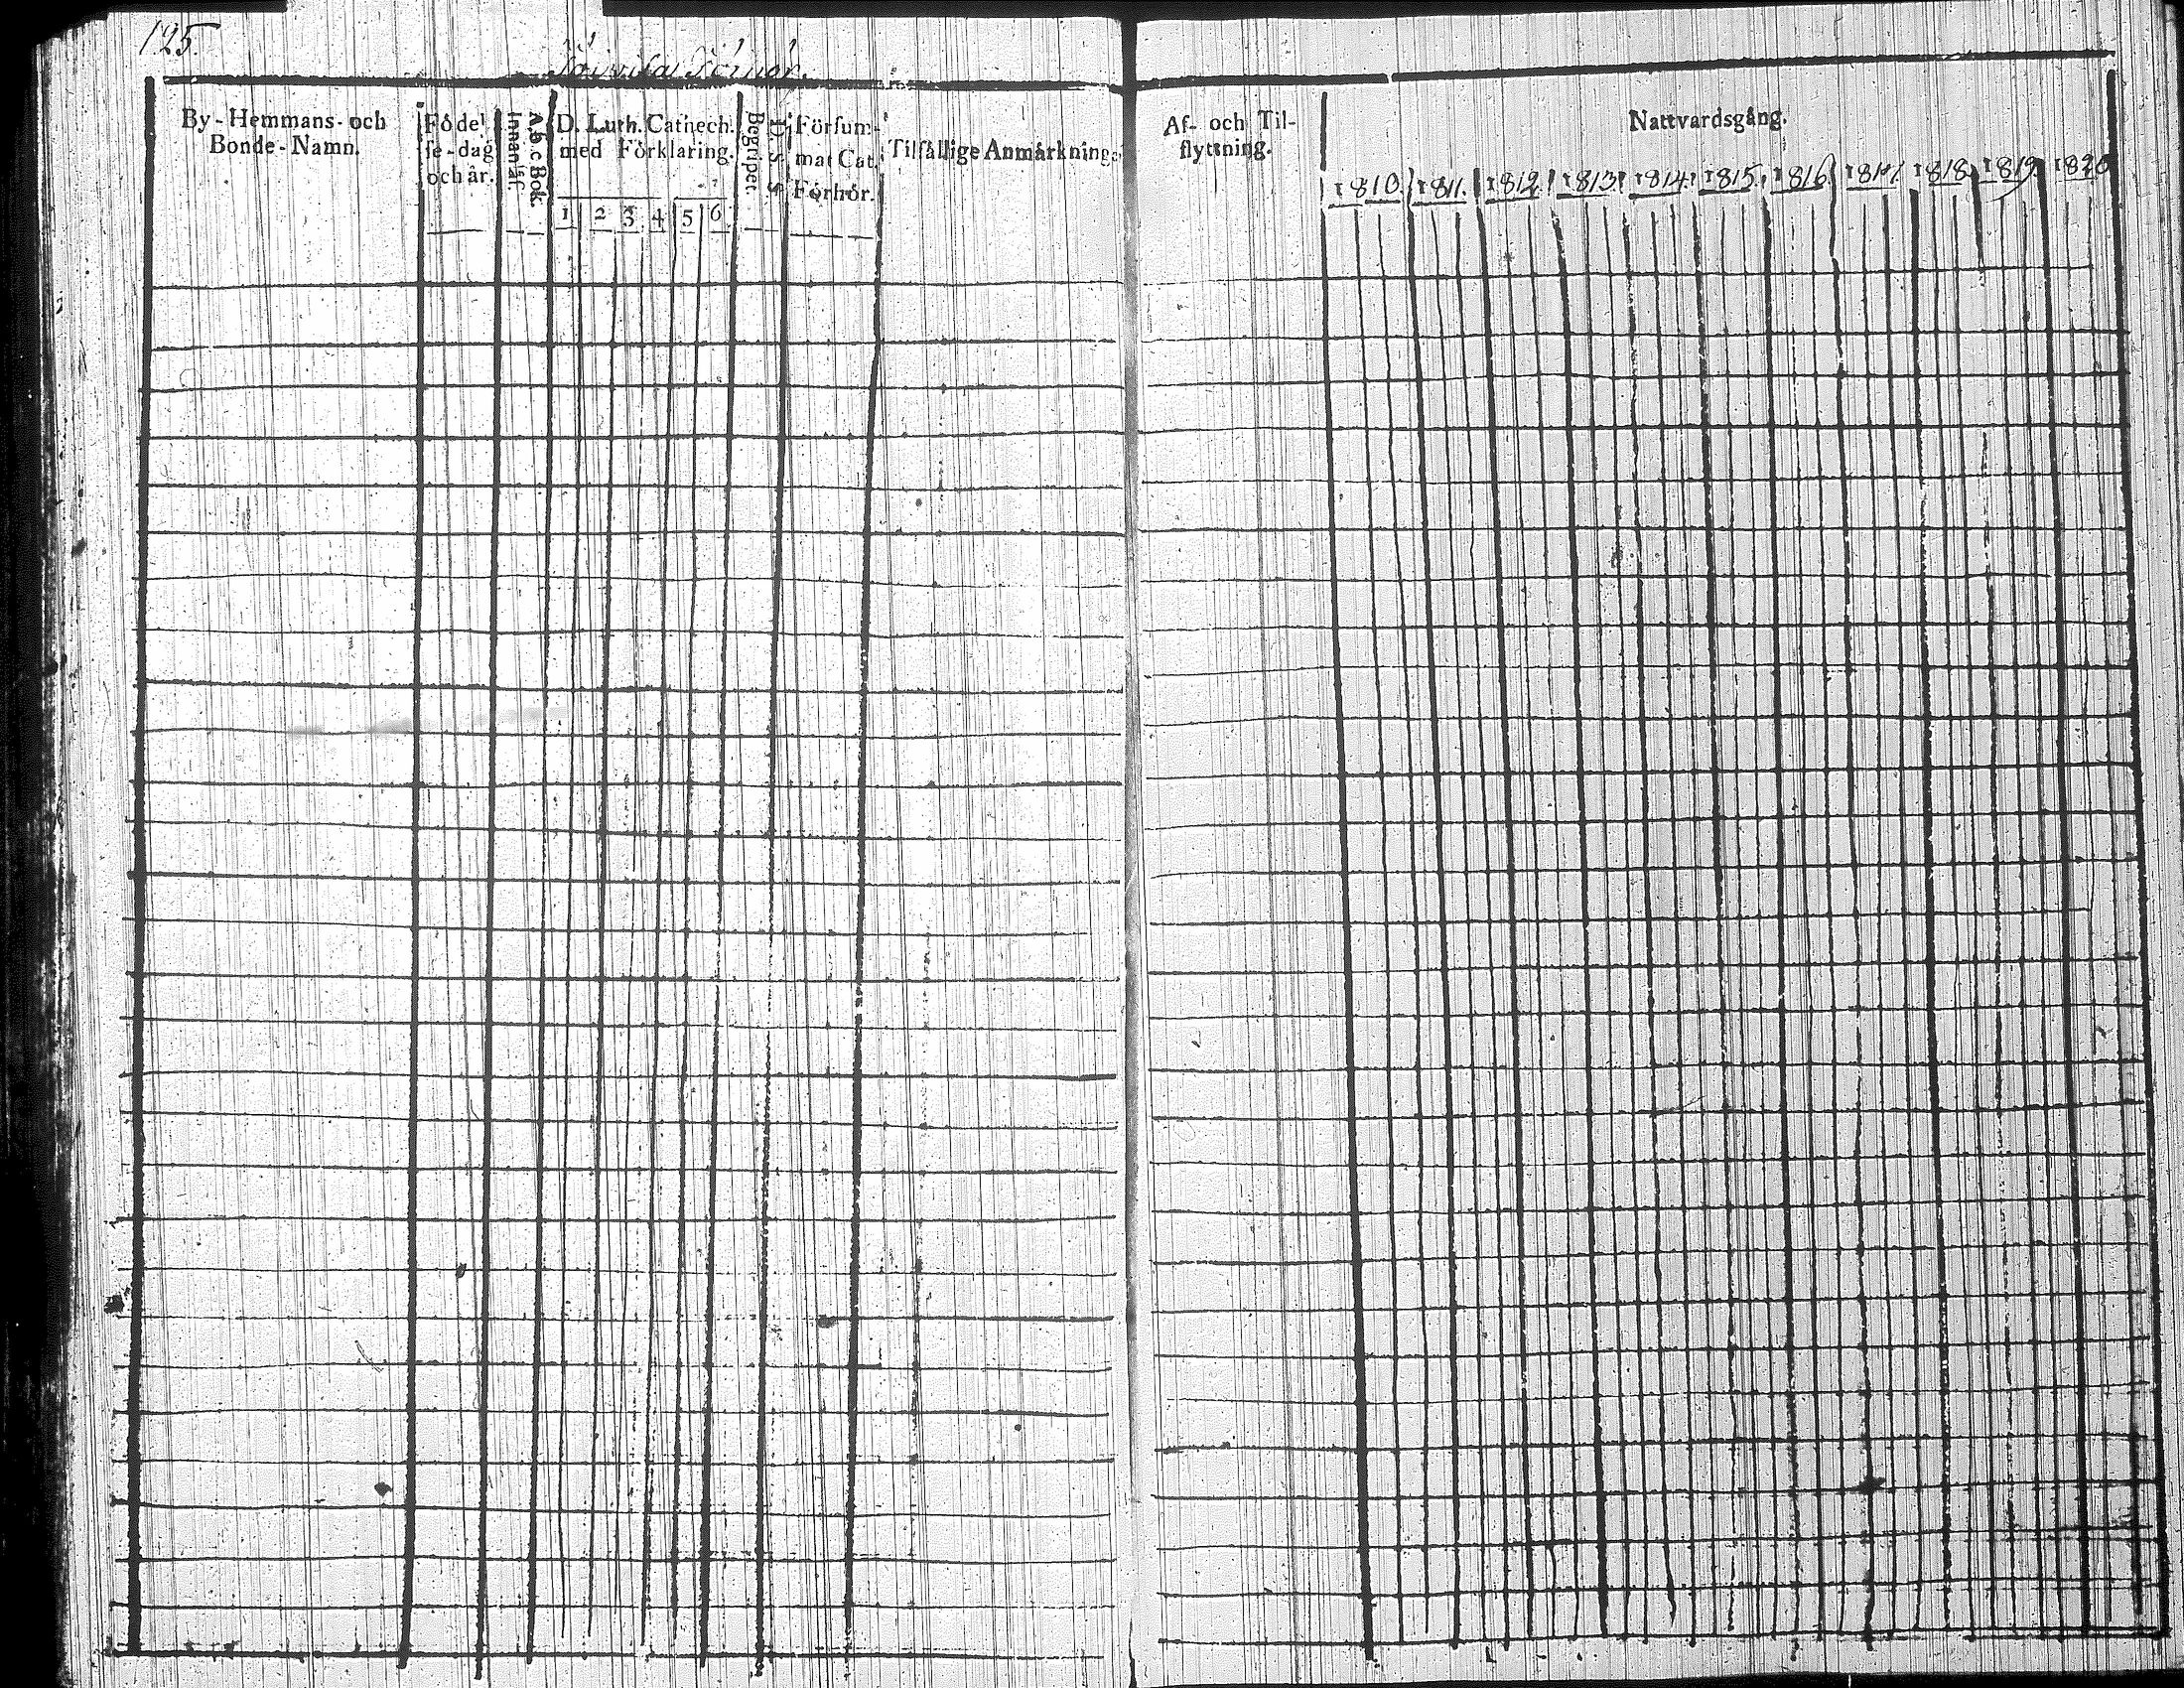 125.
By-Hemmans- och
Bonde-Namn.
Födel
se-dag
och år.
A.b.c Bok.
Innanläs.
D. Luth. Cathech.
med Förklaring.
1 2 3 4 5 6
Begripet.
D. S. S.
Försum-
mat Cat.
Förhör.
Tilfällige Anmärkninga
Af- och Til-
flyttning.
Nattvardsgång.
1810. 1811. 1812. 1813. 1814. 1815. 1816. 1817. 1818. 1819. 1820